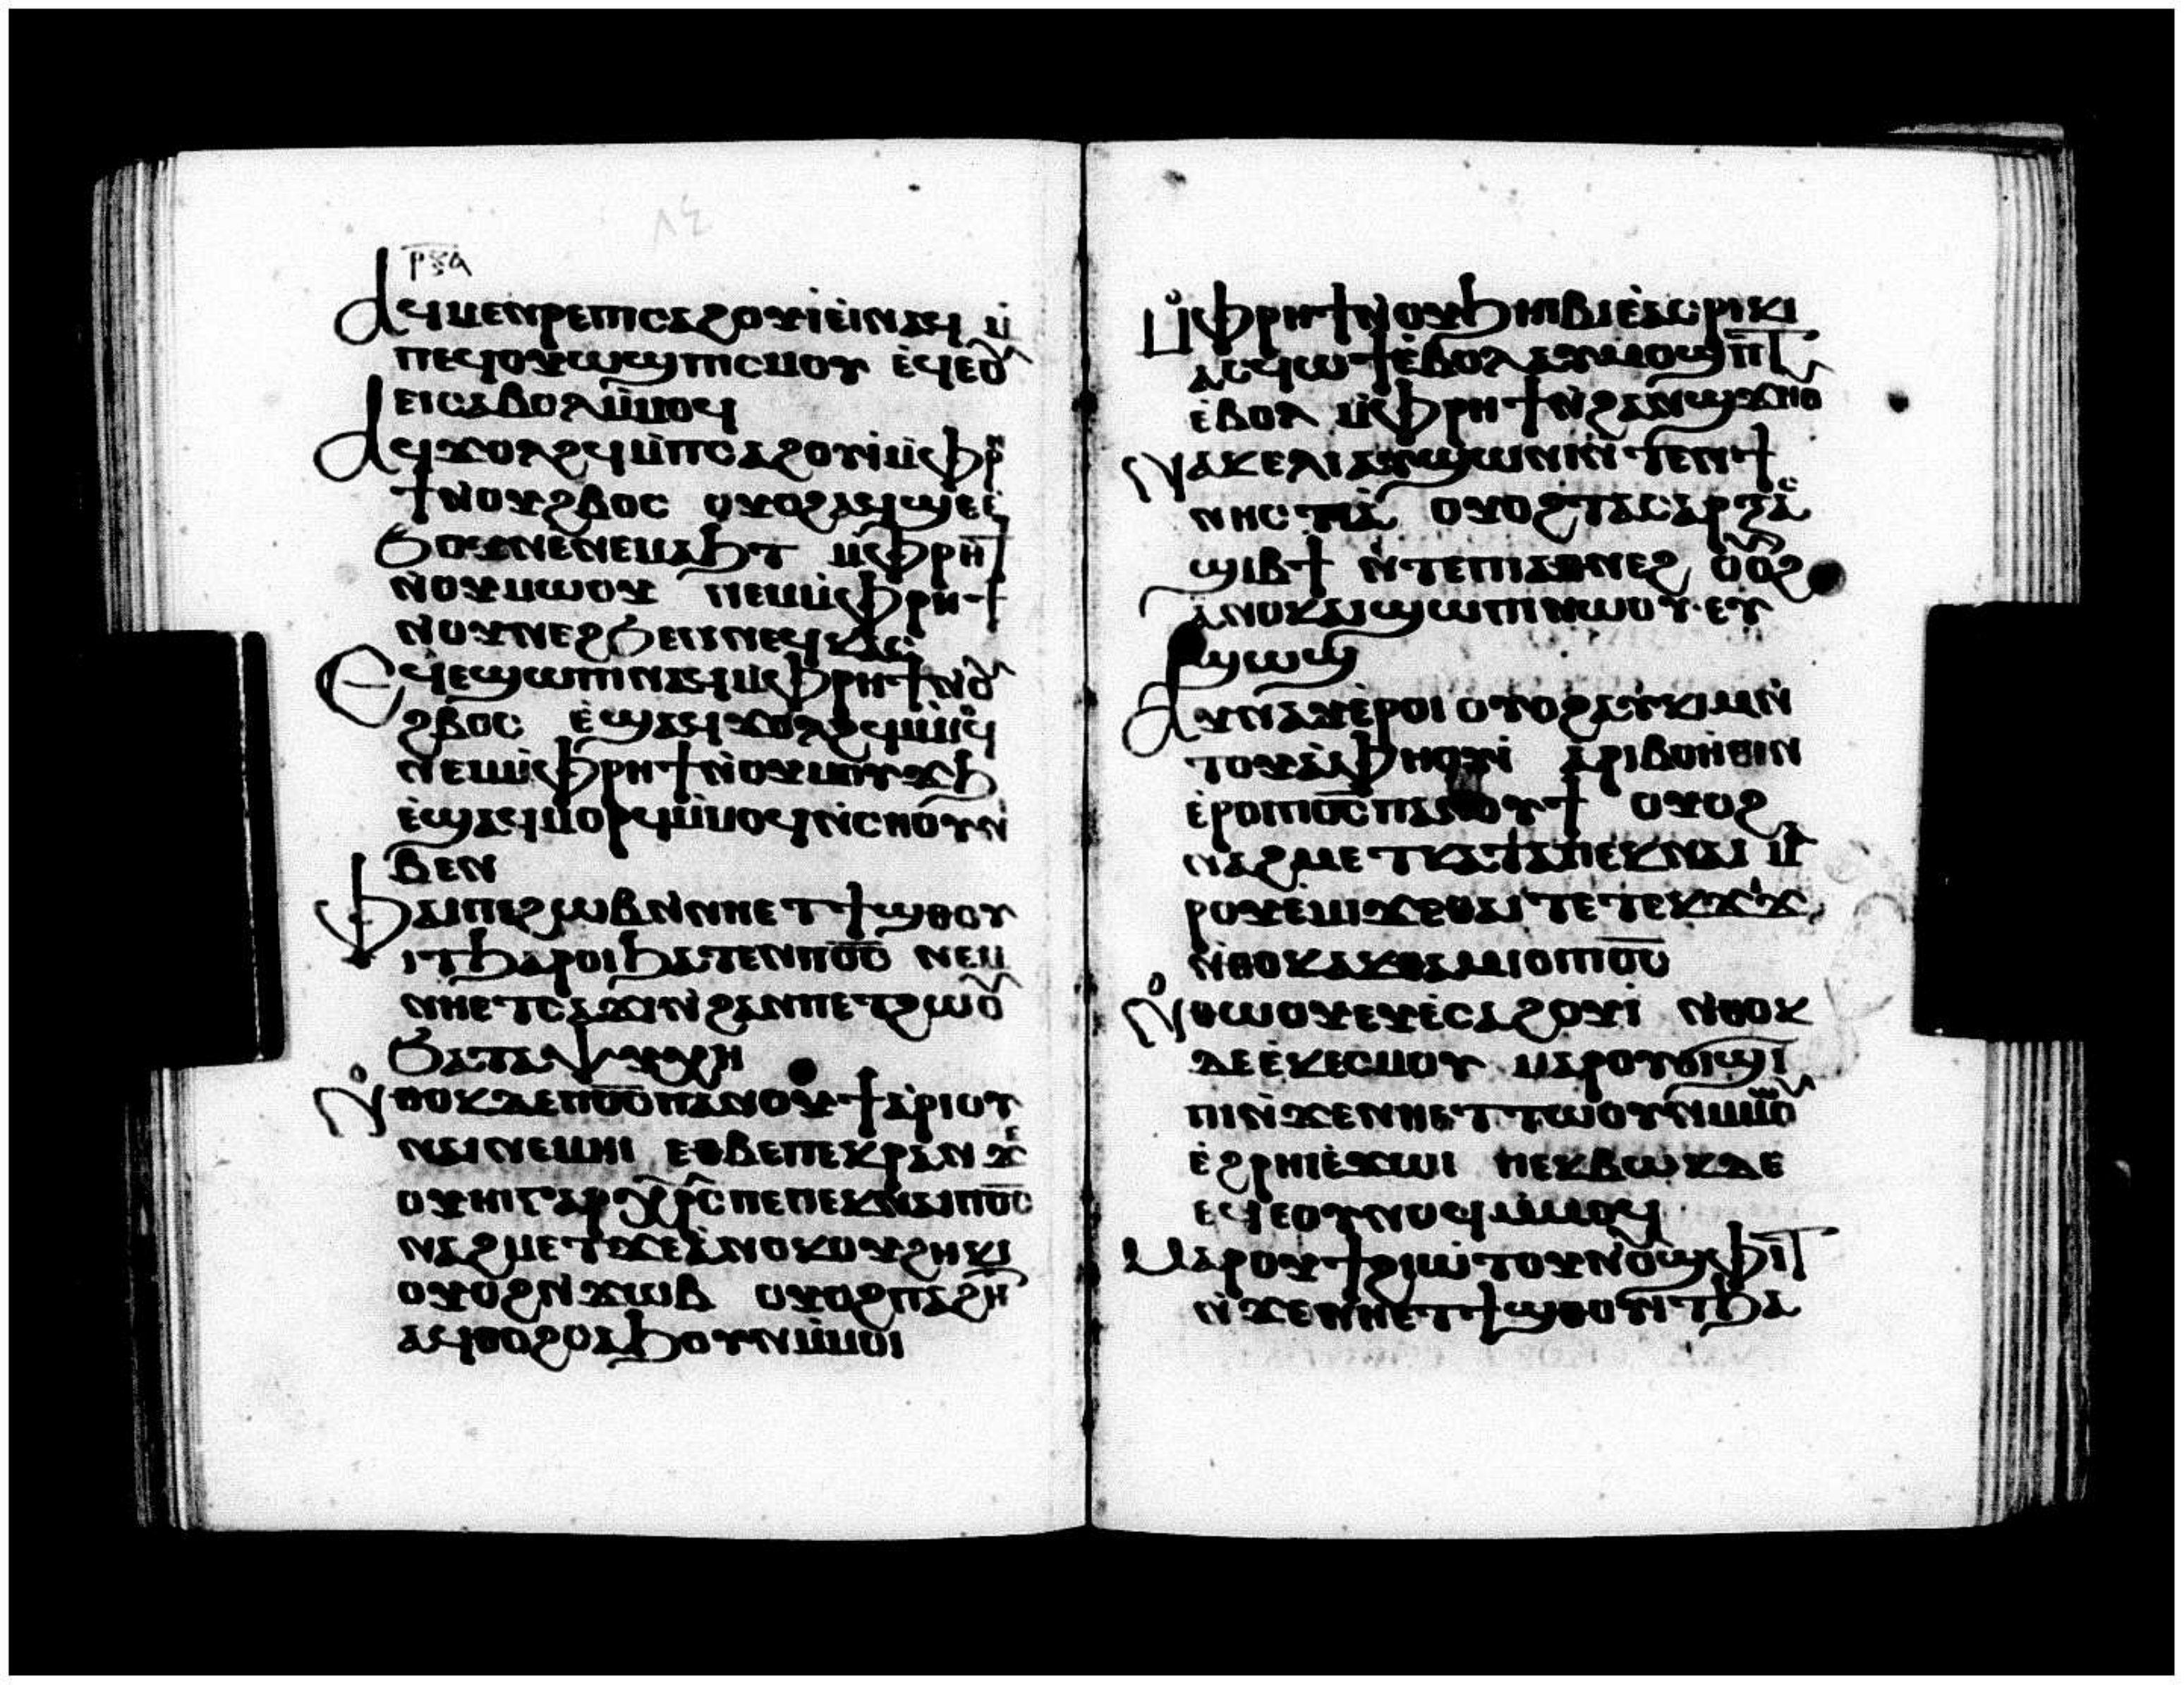 ⲣⲝⲁ
Ⲁϥⲙⲉⲛⲣⲉⲡⲓⲥⲁϩⲟⲩⲓ ⲉϥⲉⲓⲛⲁϥ ⲙ̀
ⲡⲉϥⲟⲩⲱϣⲡⲓⲥⲙⲟⲩ ⲉϥⲉⲟⲩ
ⲉⲓⲥⲁⲃⲟⲗⲙ̀ⲙⲟϥ
Ⲁϥϫⲟⲗϩϥⲙ̀ⲡⲥⲁϩⲟⲩⲓ̀ⲙ̀ⲫⲣⲏ
ϯⲛ̀ⲟⲩϩⲃⲟⲥ ⲟⲩⲟϩⲁϥϣⲉⲉ̀
ϧⲟⲩⲛⲉⲛⲉⲙⲁϧⲧ ⲙ̀ⲫⲣⲏϯ
ⲛ̀ⲟⲩⲙⲱⲟⲩ ⲛⲉⲙⲙ̀ⲫⲣⲏϯ
ⲛ̀ⲟⲩⲛⲉϩϧⲉⲛⲛⲉϥⲕⲁⲥ
Ⲉϥⲉϣⲱⲡⲓⲛⲁϥⲙ̀ⲫⲣⲏϯⲛ̀ⲟⲩ
ϩⲃⲟⲥ ⲉ̀ϣⲁϥϫⲟⲗϩϥⲙ̀ⲙⲟϥ
ⲛⲉⲙⲙ̀ⲫⲣⲏϯⲛ̀ⲟⲩⲙⲟⲩϫϧ
ⲉ̀ϣⲁϥⲙⲟⲣϥⲙ̀ⲙⲟϥⲛ̀ⲥⲏⲟⲩⲛ̀
ⲃⲉⲛ
Ⲫⲁⲓⲡⲉϩⲱⲃⲛ̀ⲛⲏⲉⲧϯϣⲑⲟⲩ
ⲓⲧϧⲁⲣⲟⲓϧⲁⲧⲉⲛⲡⲟ̅ⲥ̅ ⲛⲉⲙ
ⲛⲏⲉⲧⲥⲁϫⲓⲛ̀ϩⲁⲛⲡⲉⲧϩⲱⲟⲩ
ϧⲁⲧⲁⲯⲩⲭⲏ
Ⲛ̀ⲑⲟⲕⲇⲉⲡⲟ̅ⲥ̅ⲡⲁⲛⲟⲩϯⲁ̀ⲣⲓⲟⲩ
ⲛⲁⲓⲛⲉⲙⲏⲓ ⲉⲑⲃⲉⲡⲉⲕⲣⲁⲛ ϫⲉ
ⲟⲩⲏⲓⲅⲁⲣⲭ̅ⲣ̅ⲥ̅ⲡⲉⲡⲉⲕⲛⲁⲓⲡⲟ̅ⲥ̅
ⲛⲁϩⲙⲉⲧϫⲉⲁ̀ⲛⲟⲕⲟⲩϩⲏⲕⲓ
ⲟⲩⲟϩⲛ̀ϫⲱⲃ ⲟⲩⲟϩⲡⲁϩⲏⲧ
ⲁϥⲑⲟϩⲥⲁϧⲟⲩⲛⲙ̀ⲙⲟⲓ
Ⲙ̀ⲫⲣⲏϯⲛ̀ⲟⲩϧⲏⲓⲃⲓⲉ̀ⲁⲥⲣⲓⲕⲓ
ⲁⲥϥⲱϯⲉ̀ⲃⲟⲗⲁⲩⲛⲟϣⲡⲧ
ⲉ̀ⲃⲟⲗ ⲙ̀ⲫⲣⲏϯⲛ̀ϩⲁⲛϣϫⲏⲟⲩ
Ⲛⲁⲕⲉⲗⲓⲁⲩϣⲱⲛⲓϧⲉⲛϯ
ⲛⲏⲥⲧⲓⲁ̀ ⲟⲩⲟϩⲧⲁⲥⲁⲣⲝⲁⲥ
ϣⲓⲃϯ ⲛ̀ⲧⲉⲡⲓⲁⲑⲛⲉϩ ⲟⲩⲟϩ
ⲁⲛⲟⲕⲁⲓϣⲱⲡⲓⲛⲱⲟⲩⲉⲩ
ϣⲱϣ
Ⲁⲩⲛⲁⲩⲉ̀ⲣⲟⲓ ⲟⲩⲟϩⲁⲩⲕⲓⲙⲛ̀
ⲧⲟⲩⲁ̀ⲫⲏⲟⲩⲓ̀ ⲁⲣⲓⲃⲟⲏ̀ⲑⲓⲛ
ⲉ̀ⲣⲟⲓⲡⲟ̅ⲥ̅ⲡⲁⲛⲟⲩϯ ⲟⲩⲟϩ
ⲛⲁϩⲙⲉⲧⲕⲁⲧⲁⲡⲉⲕⲛⲁⲓ ⲙⲁ
ⲣⲟⲩⲉ̀ⲙⲓϫⲉⲑⲁⲓⲧⲉⲧⲉⲕϫⲓϫ
ⲛ̀ⲑⲟⲕⲁⲕⲑⲁⲙⲓⲟⲡⲟ̅ⲥ̅
Ⲛ̀ⲑⲱⲟⲩⲉⲩⲉ̀ⲥⲁϩⲟⲩⲓ̀ ⲛ̀ⲑⲟⲕ
ⲇⲉⲉ̀ⲕⲉⲥⲙⲟⲩ ⲙⲁⲣⲟⲩϭⲓϣⲓ
ⲡⲓⲛ̀ϫⲉⲛⲏⲉⲧⲧⲱⲟⲩⲛⲙ̀ⲙⲱⲟⲩ
ⲉ̀ϩⲣⲏⲓⲉ̀ϫⲱⲓ ⲡⲉⲕⲃⲱⲕⲇⲉ
ⲉϥⲉⲟⲩⲛⲟϥⲙ̀ⲙⲟϥ
Ⲙⲁⲣⲟⲩϯϩⲓⲱⲧⲟⲩⲛ̀ⲟⲩϣⲫⲓⲧ
ⲛ̀ϫⲉⲛⲏⲉⲧϯϣⲑⲟⲩⲓⲧϧⲁ